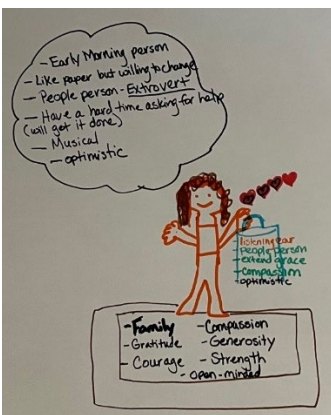 - Early Morning person
- Like paper but willing to change
- People person - Extrovert
- Have a hard time asking for help
(will get it done)
- Musical
- optimistic
- listening ear
- people person
- extend grace
- compassion
- optimistic
- Family
- Gratitude
- Courage
- Compassion
- Generosity
- Strength
- open-minded